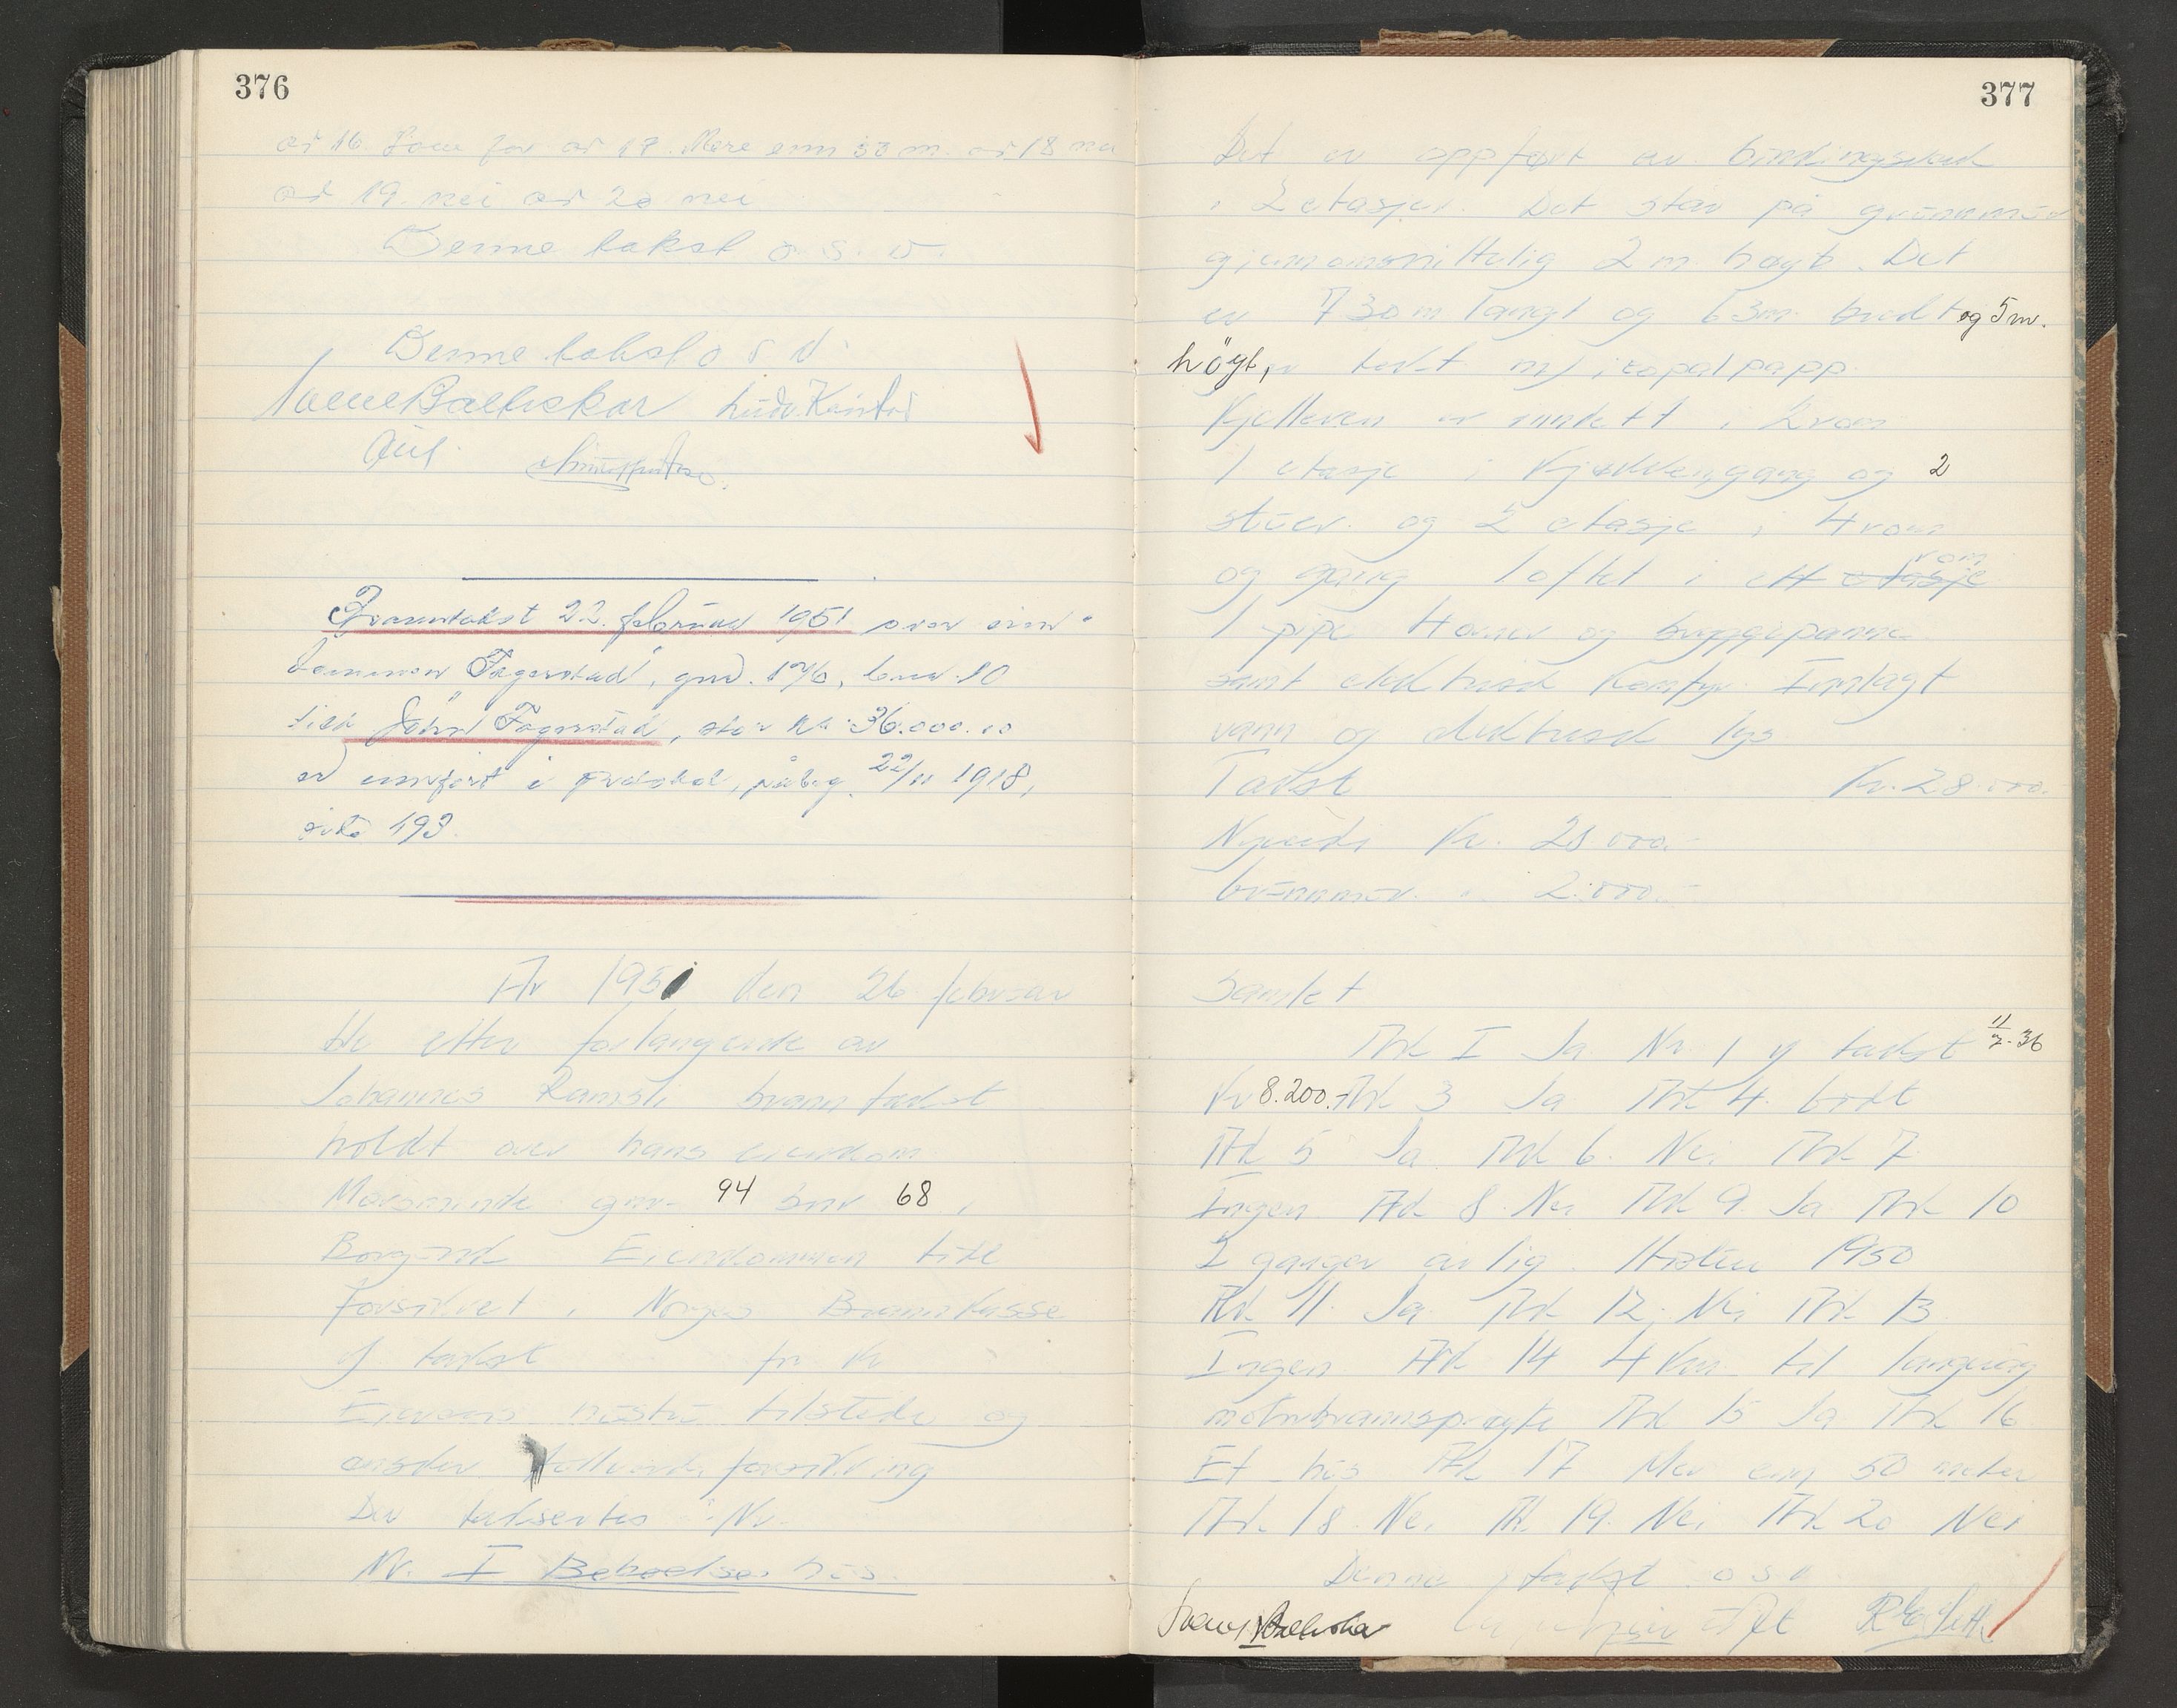 376
at 16. Some for at 17. Mere enn 50 m. at 18 nei
at 19. nei at 20 nei
Denne takst o. s. v.
Denne takst o s v.
Branntakst 22. februar 1951 over eien-
dommen "Fagerstad", gnr. 176, bnr. 10
tilh. John Fagerstad, stor kr. 36.000.00
er innført i protokol, påbeg. 22/11 1918,
side 493.
År 1951 den 26 februar
ble etter forlangende av
Johannes Ramsli branntakst
holdt over hans eiendom
gnr. 94 bnr 68,
Borgund Eiendommen
forsikret i Norges Brannkasse
if takst fr kr
Eierens hustru tilstede og
ønsker fullverdi forsikring
Der taksertes: Nr.
Nr. I Beboelseshus.
377
Det er oppført av bindingsverk
i 2 etasjer. Det står på grunnmur
gjennomsnittelig 2 m høyt. Det
er 7 30 m langt og 6 3m bredt og 5 m.
höyt, tekt m/ icopalpapp.
Kjelleren er inndelt i 2 rom
1 etasje i Kjøkken, gang og 2
stuer. og 2 etasje i 4 rom
og gang loftet i ett etasje rom
1 pipe 4 ovner og bryggepanne
samt elektrisk komfyr Innlagt
vann og elektrisk lys
Takst Kr. 28.000.
Nyverdi Kr. 28 000.-
Grunnmur. " 2.000.-
Samlet
Pkt I Ja Nr. 1 if takst 11/7-36
Kr 8.200.- Pkt 3 Ja Pkt 4. Godt
Pkt 5 Ja Pkt 6. Nei Pkt 7
Ingen Pkt 8. Nei Pkt 9. Ja Pkt 10
2 ganger årlig. Høsten 1950
Pkt 11. Ja Pkt 12. Nei Pkt 13
Ingen Pkt 14 4 km til
motorbrannsprøyte Pkt 15 Ja Pkt 16
Et hus Pkt 17 Mer enn 50 meter
Pkt. 18. Nei Pkt. 19. Nei Pkt 20 Nei
Denne takst o s v